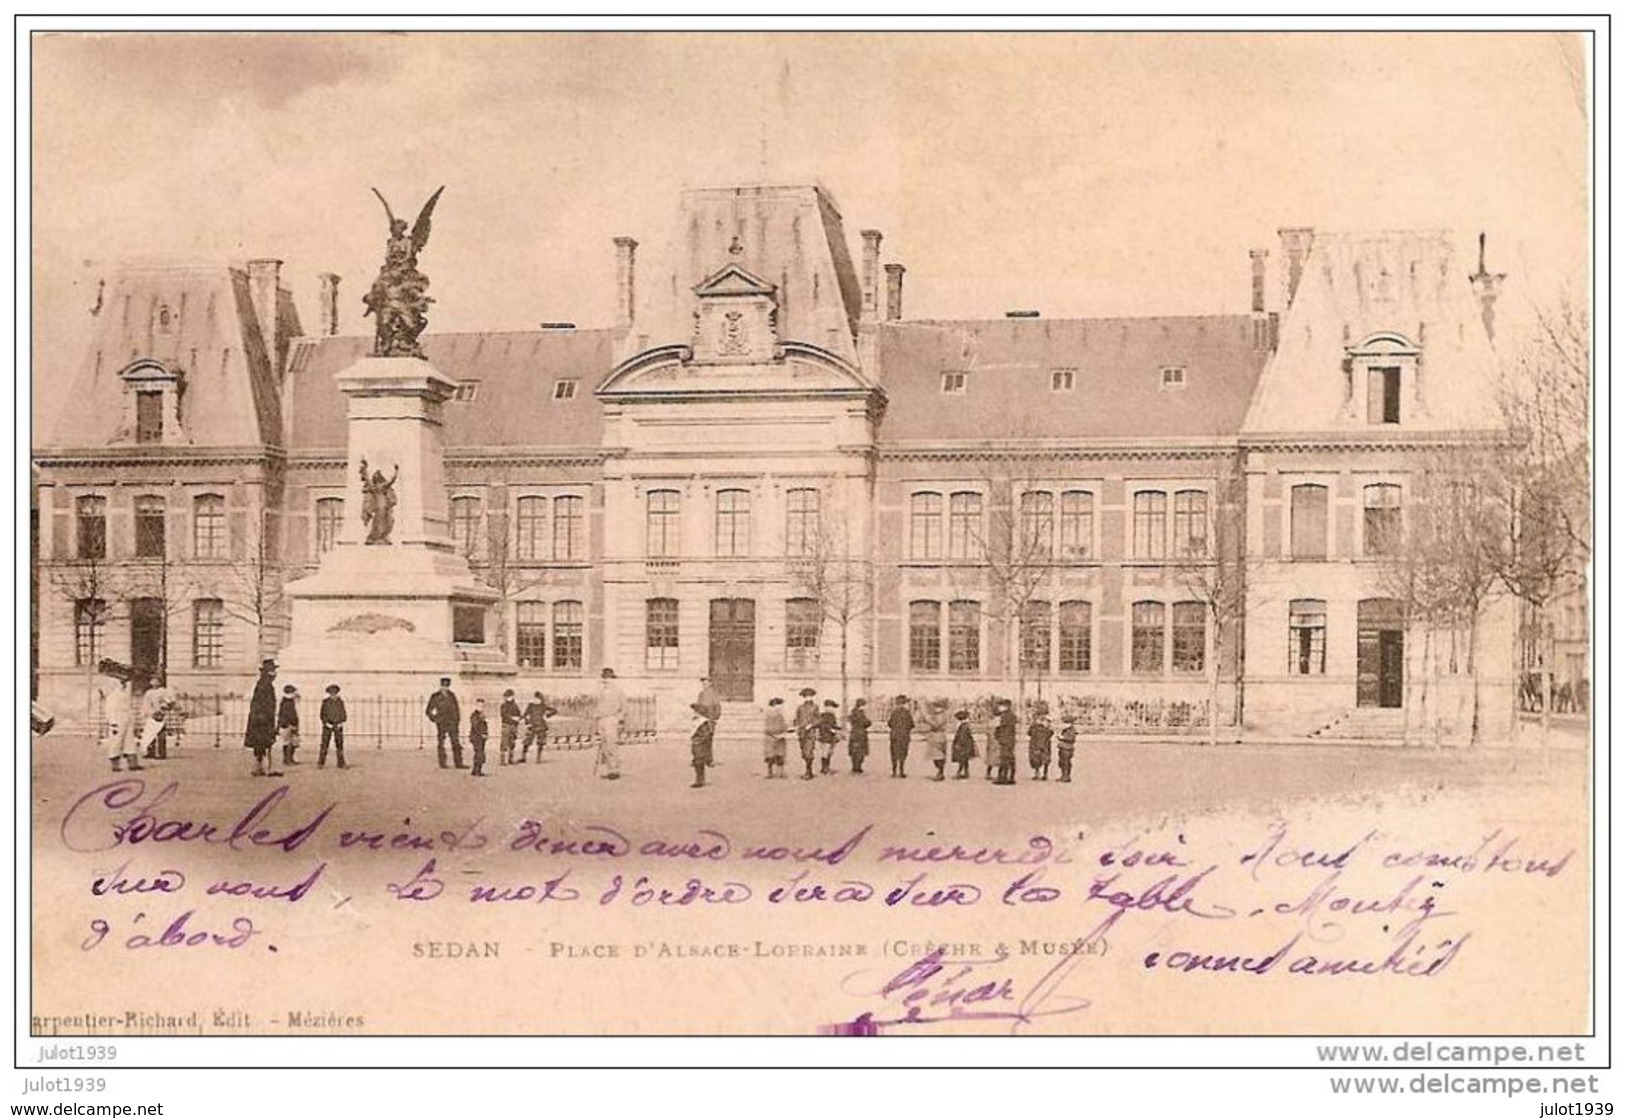 Charles vient diner avec nous mercredi soir, Nous comptons
sur vous, Le mot d'ordre sera sur la table.
d'abord.
SEDAN - PLACE D'ALSACE-LORRAINE (CRÈCHE & MUSÉE)
bonnes amitiés
arpentier-Richard, Édit - Mézières
julot1939
www.delcampe.net
julot1939
www.delcampe.net
www.delcampe.net
julot1939